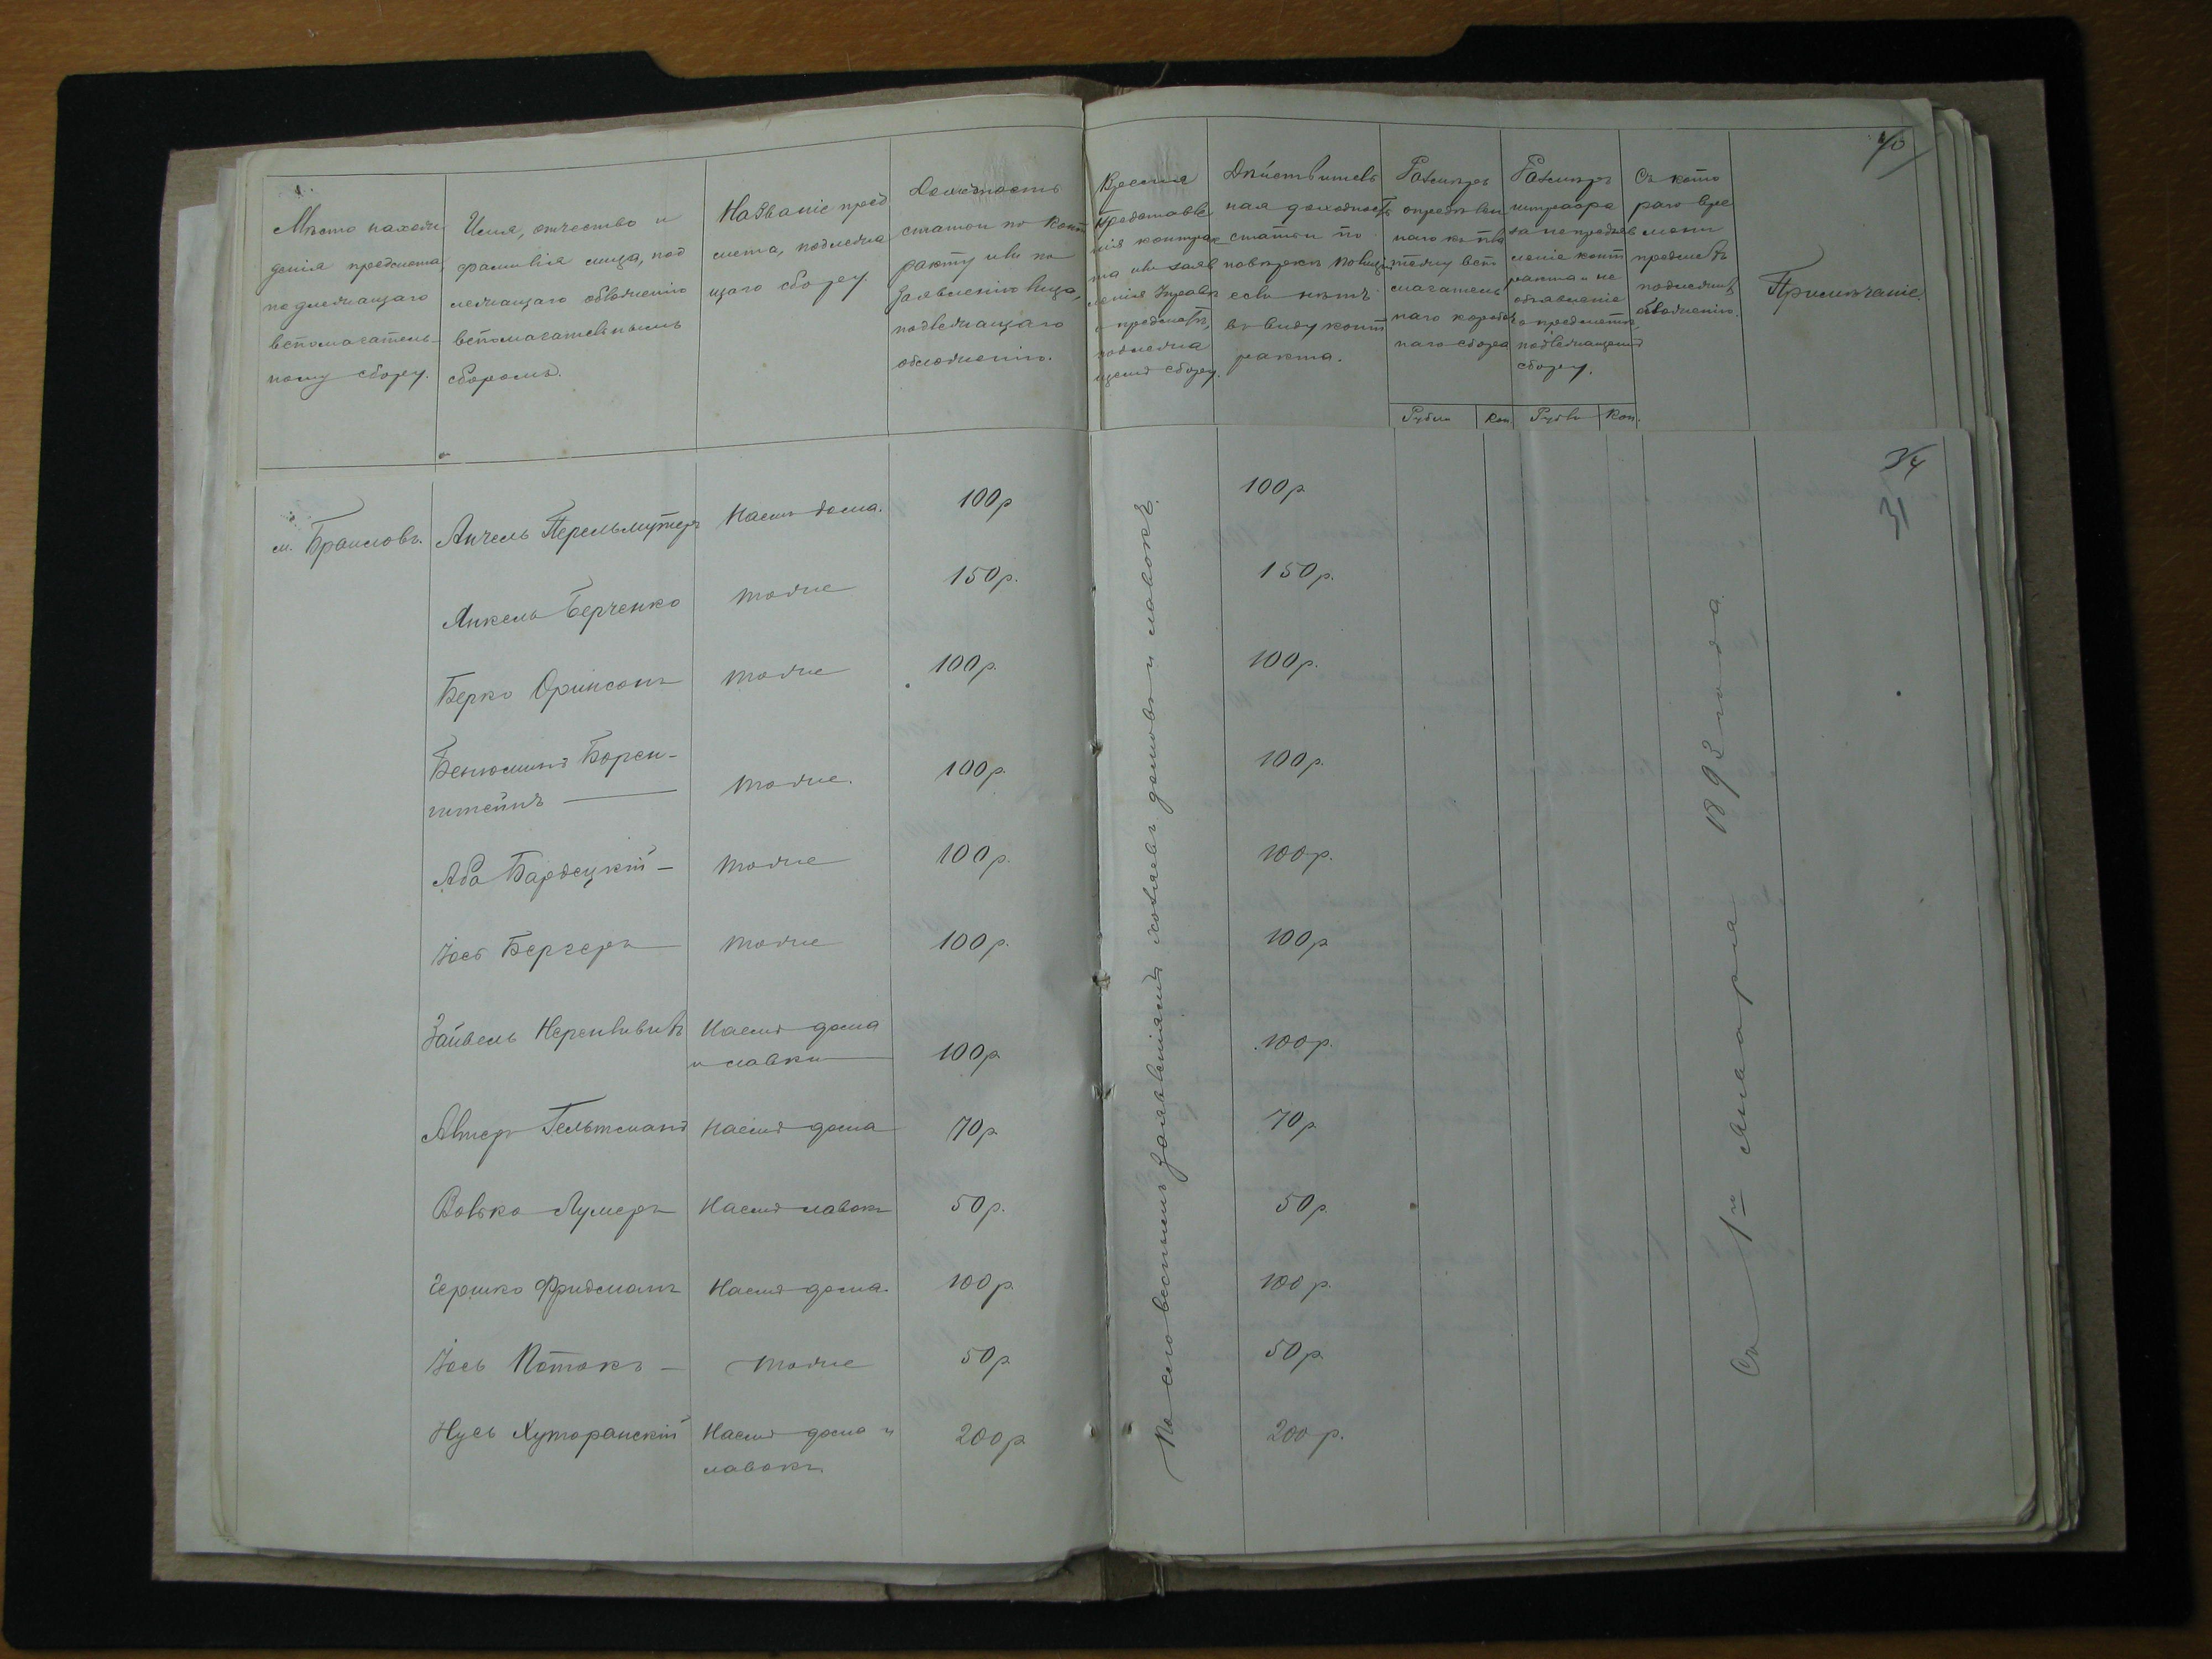 40
Мѣсто нахож-
денія предмета,
подлежащаго
вспомогатель-
ному сбору.
Имя, отчество и
фамилія лица, под
лежащаго обложенію
вспомогательнымъ
сборомъ.
Названіе пред
мета, подлежа
щаго сбору.
Доходность
статьи по конт
ракту или по
заявленію лица,
подлежащаго
обложенію.
Время
представле
нія контрак
та или заяв
ленія Управѣ
о предметѣ,
подлежа
щемъ сбору.
Дѣйствитель
ная доходность
статьи по
повѣркѣ полиціи
если нѣтъ
въ виду конт
ракта.
Размѣръ
опредѣлен
наго къ пла
тежу вспо
магатель
наго коробоч
наго сбора
Рубли
Коп
Размѣръ
штрафа
за непредъяв
леніе конт
ракта и не
объявленіе
о предметѣ,
подлежащемъ
сбору.
Рубли
Коп.
Съ кото
раго вре
мени
предметъ
подлежитъ
обложенію.
Примѣчаніе.
34
31
м. Браиловъ. Анчель Перельмутеръ Наемъ дома. 100р 100р.
Янкель Берченко тоже 150р. 150р.
Берко Оринсонъ тоже 100р. 100р.
Бенюминъ Борен-
штейнъ тоже. 100р. 100р.
Аба Бардецкій тоже 100р. 100р.
Іось Бергеръ тоже 100р. 100р
Зайвель Неренливитъ Наемъ дома
и лавки 100р. 100р.
Авнеръ Гельтманъ Наемъ дома 70р. 70р.
Волько Лумеръ Наемъ лавокъ 50р. 50р.
Гершко Фридманъ Наемъ дома. 100р. 100р.
Іось Потокъ тоже 50р. 50р.
Нусь Хуторанскій Наемъ дома и 200р. 200р.
лавокъ.
По словеснымъ заявленіямъ хозяевъ домовъ и лавокъ.
Съ 1го Января 1892 года.